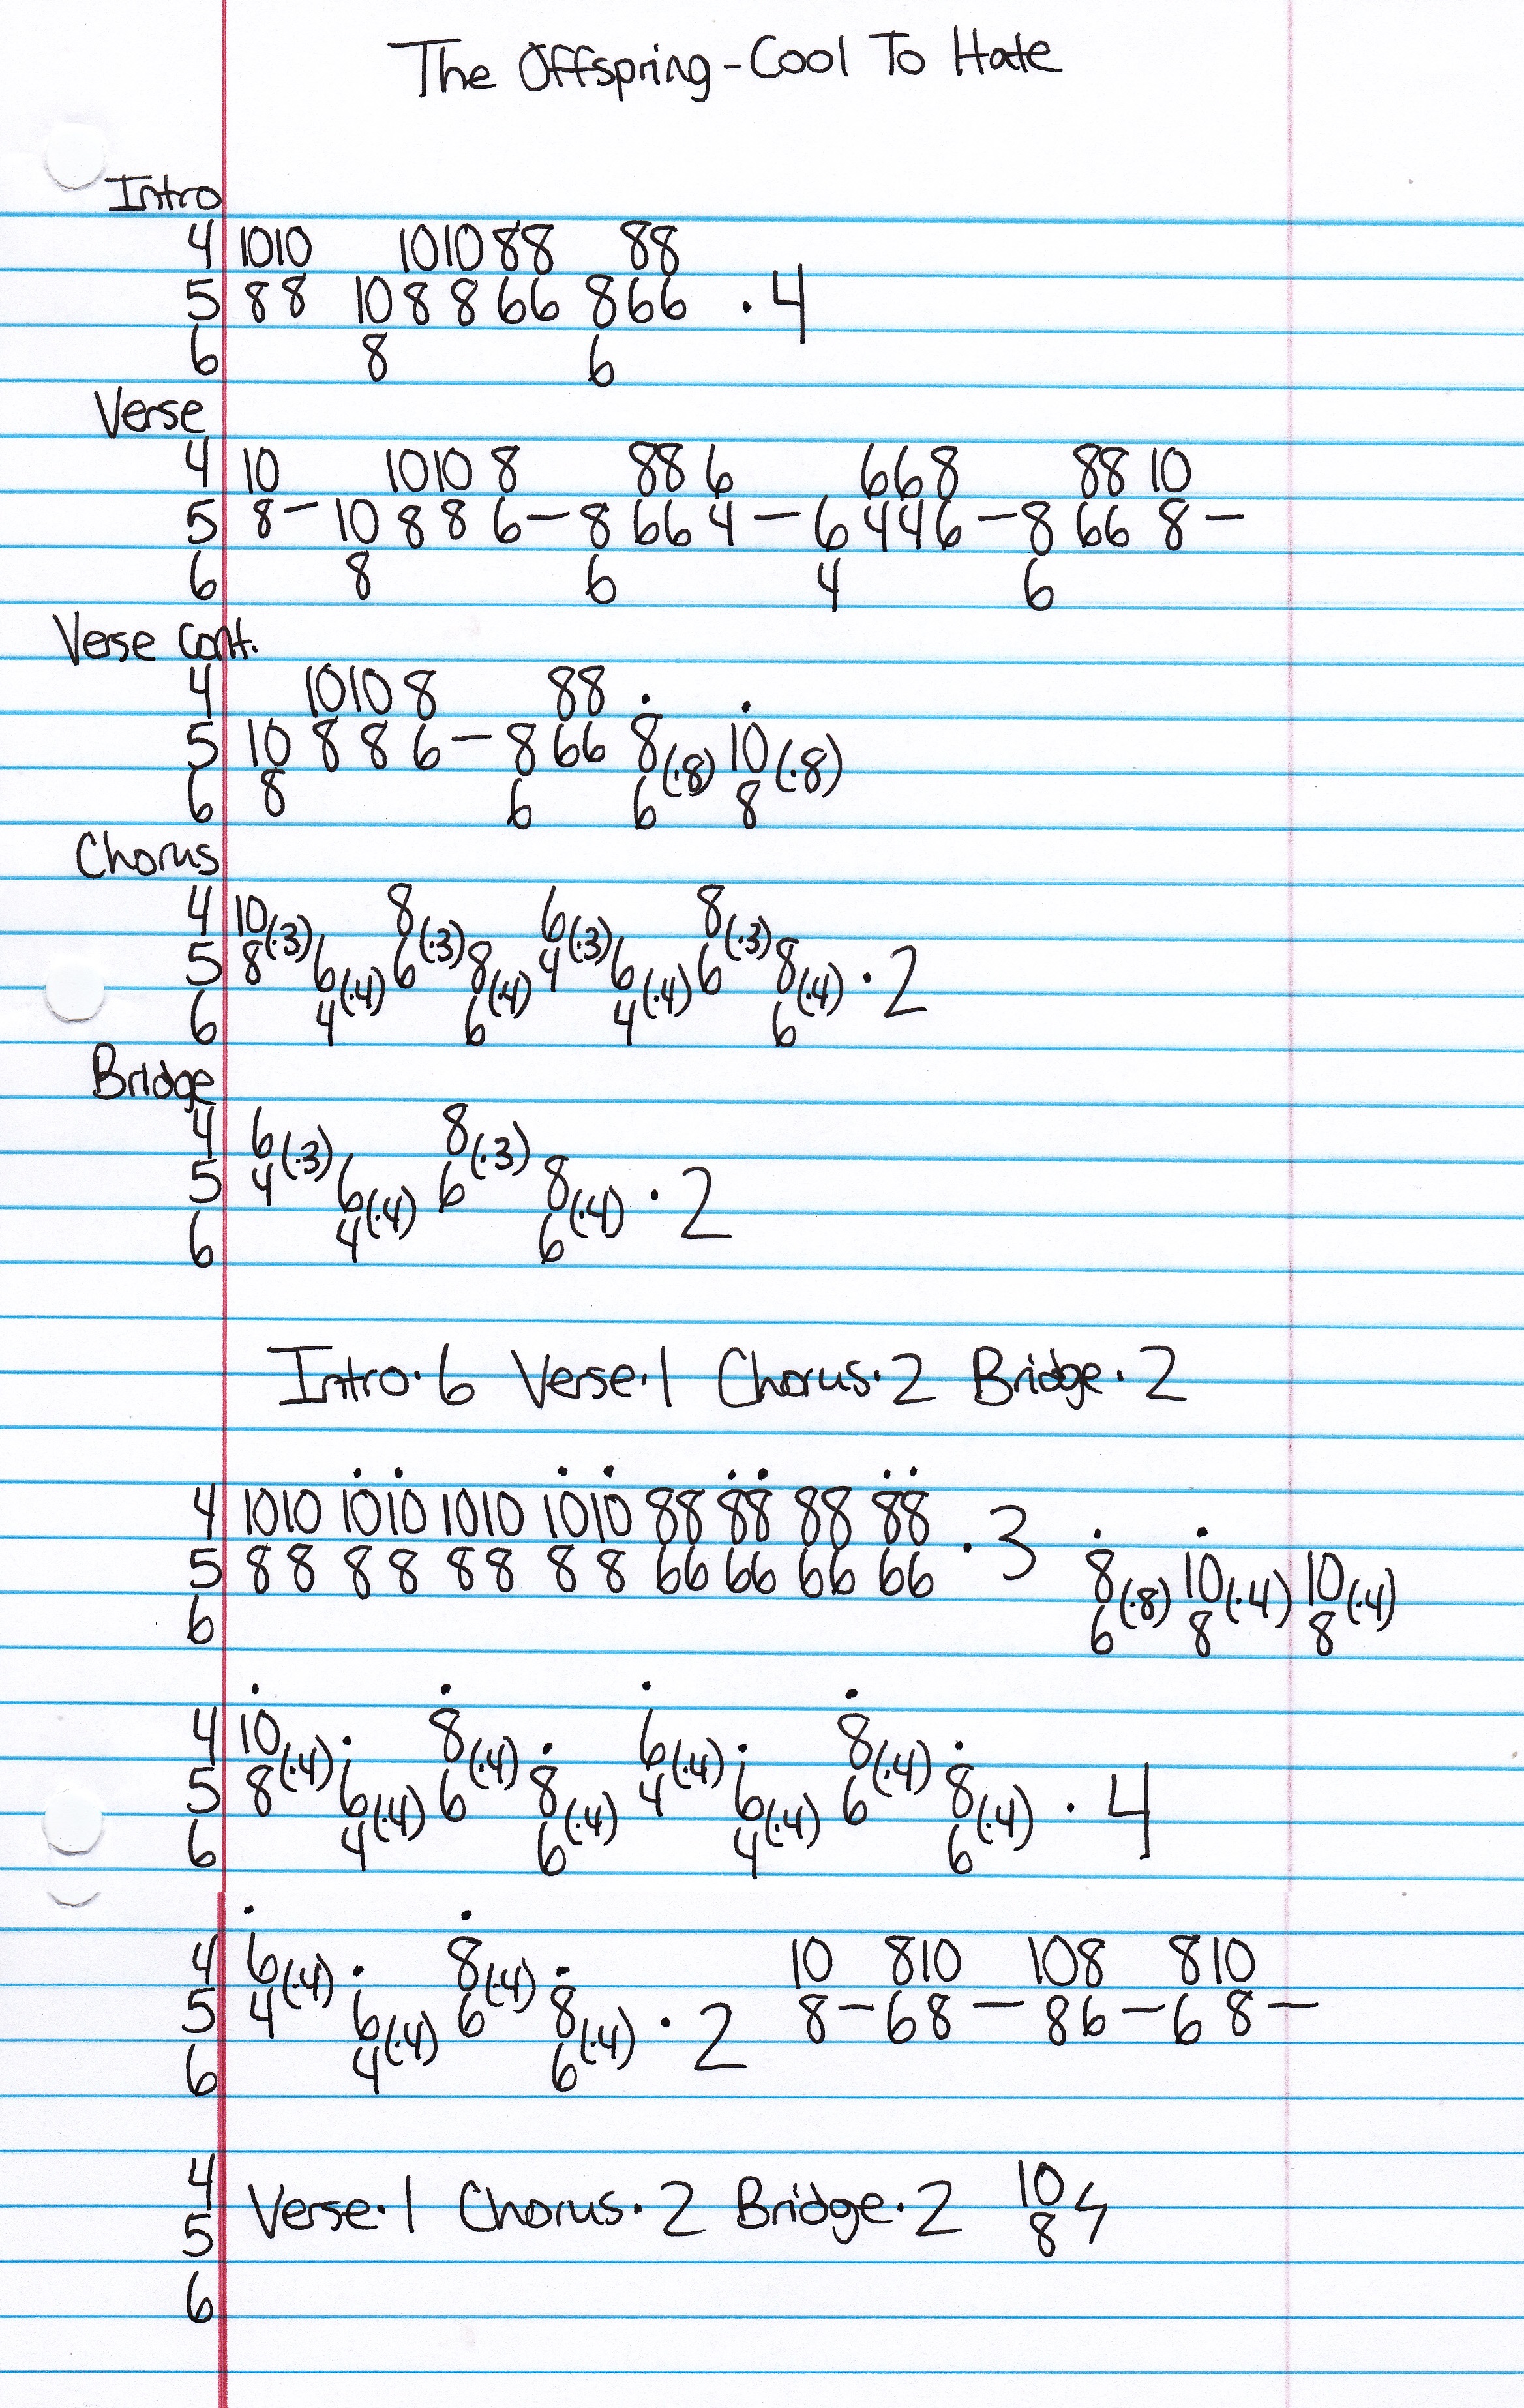 The Offspring - Cool To Hate
Intro
4 1010 1010 88 88
5 8 8 10 8 8 66 8 66 · 4
6 8 6
Verse
4 10 1010 8 88 6 668 88 10
5 8 — 10 8 8 6 — 8 66 4 — 6 446 — 8 66 8 —
6 8 6 4 6
Verse Cont.
4 1010 8 88 · ·
5 10 8 8 6 — 8 66 8(·8) 10(·8)
6 8 6 6 8
Chorus
4 10(·3) 8(·3) 6(·3) 8(·3)
5 8 6(·4) 6 8(·4) 4 6(·4) 6 8(·4) · 2
6 4 6 4 6
Bridge
4 6(·3) 8(·3)
5 4 6(·4) 6 8(·4) · 2
6 4 6
Intro·6 Verse·1 Chorus·2 Bridge·2
· · · · · · · ·
4 1010 1010 1010 1010 88 88 88 88 · 3 · ·
5 8 8 8 8 8 8 8 8 66 66 66 66 8(·8) 10(·4) 10(·4)
6 6 8 8
· · · ·
4 10(·4) · 8(·4) · 6(·4) · 8(·4) ·
5 8 6(·4) 6 8(·4) 4 6(·4) 6 8(·4) · 4
6 4 6 4 6
· ·
4 6(·4) · 8(·4) · 10 810 108 810
5 4 6(·4) 6 8(·4) · 2 8 — 68 — 86 — 6 8 —
6 4 6
4 10
Verse·1 Chorus·2 Bridge·2
5 8
6